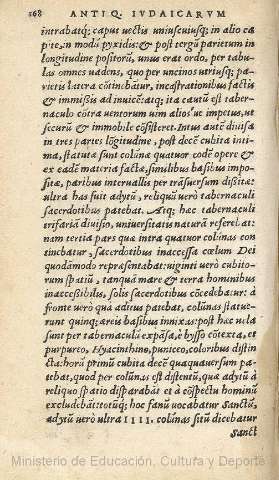 168 ANTIQ. IVDAICARVM
intrabatq; caput vectis uniuscuiusq; in alio ca
pite, in modũ pyxidis: & post tergũ parietum in
longitudine positorũ, unus erat ordo, per tabu
las omnes uadens, quo per uncinos utriusq; pa-
rietis latera cõtinebãtur, incastrationibus factis
& immissis ad inuicẽ: atq; ita cautũ est taber-
naculo cõtra uentorum uim alios'ue impetus, ut
securũ & immobile cõsisteret. Intus autẽ diuisa
in tres partes lõgitudine, post decẽ cubita inti-
ma, statutæ sunt colũnæ quatuor eodẽ opere &
ex eadẽ materia factæ, similibus basibus impo-
sitæ, paribus interuallis per trãsuersum dissitæ:
ultra has fuit adytũ, reliquũ uerò tabernaculi
sacerdotibus patebat. Atq; hæc tabernaculi
trifaria diuisio, uniuersitatis naturã referebat:
nam tertia pars quæ intra quatuor colũnas con
tinebatur, sacerdotibus inaccessa cœlum Dei
quodãmodo repræsentabat: uiginti uerò cubito-
rum spatiũ, tanquã mare & terra hominibus
inaccessibilis, solis sacerdotibus cõcedebatur: à
fronte uerò qua aditus patebat, colũnas statue-
runt quinq; æreis basibus innixas: post hæc uela
sunt per tabernaculũ expãsa, è bysso cõtexta, et
purpureo, Hyacinthino, puniceo, coloribus distin
cta: horũ primũ cubita decẽ quaquauersum pa-
tebat, quod per colũnas est distentũ, quæ adytũ à
reliquo spatio disparabãt et à cõspectu hominũ
excludebãt: totũq; hoc fanũ uocabatur Sanctũ,
adytũ uerò ultra IIII. colũnas sitũ dicebatur
Sanct
Ministerio de Educación, Cultura y Deporte